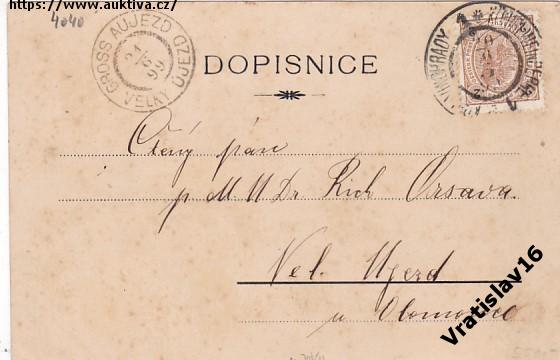 https://www.auktiva.cz/
4040
GROSS AUJEZD
21/6 99
VELKÝ ÚJEZD
VINOHRADY
DOPISNICE
Ctěný pán
p M U Dr Rich Orsava
Vel. Ujezd
u Olomouce
Vratislav16